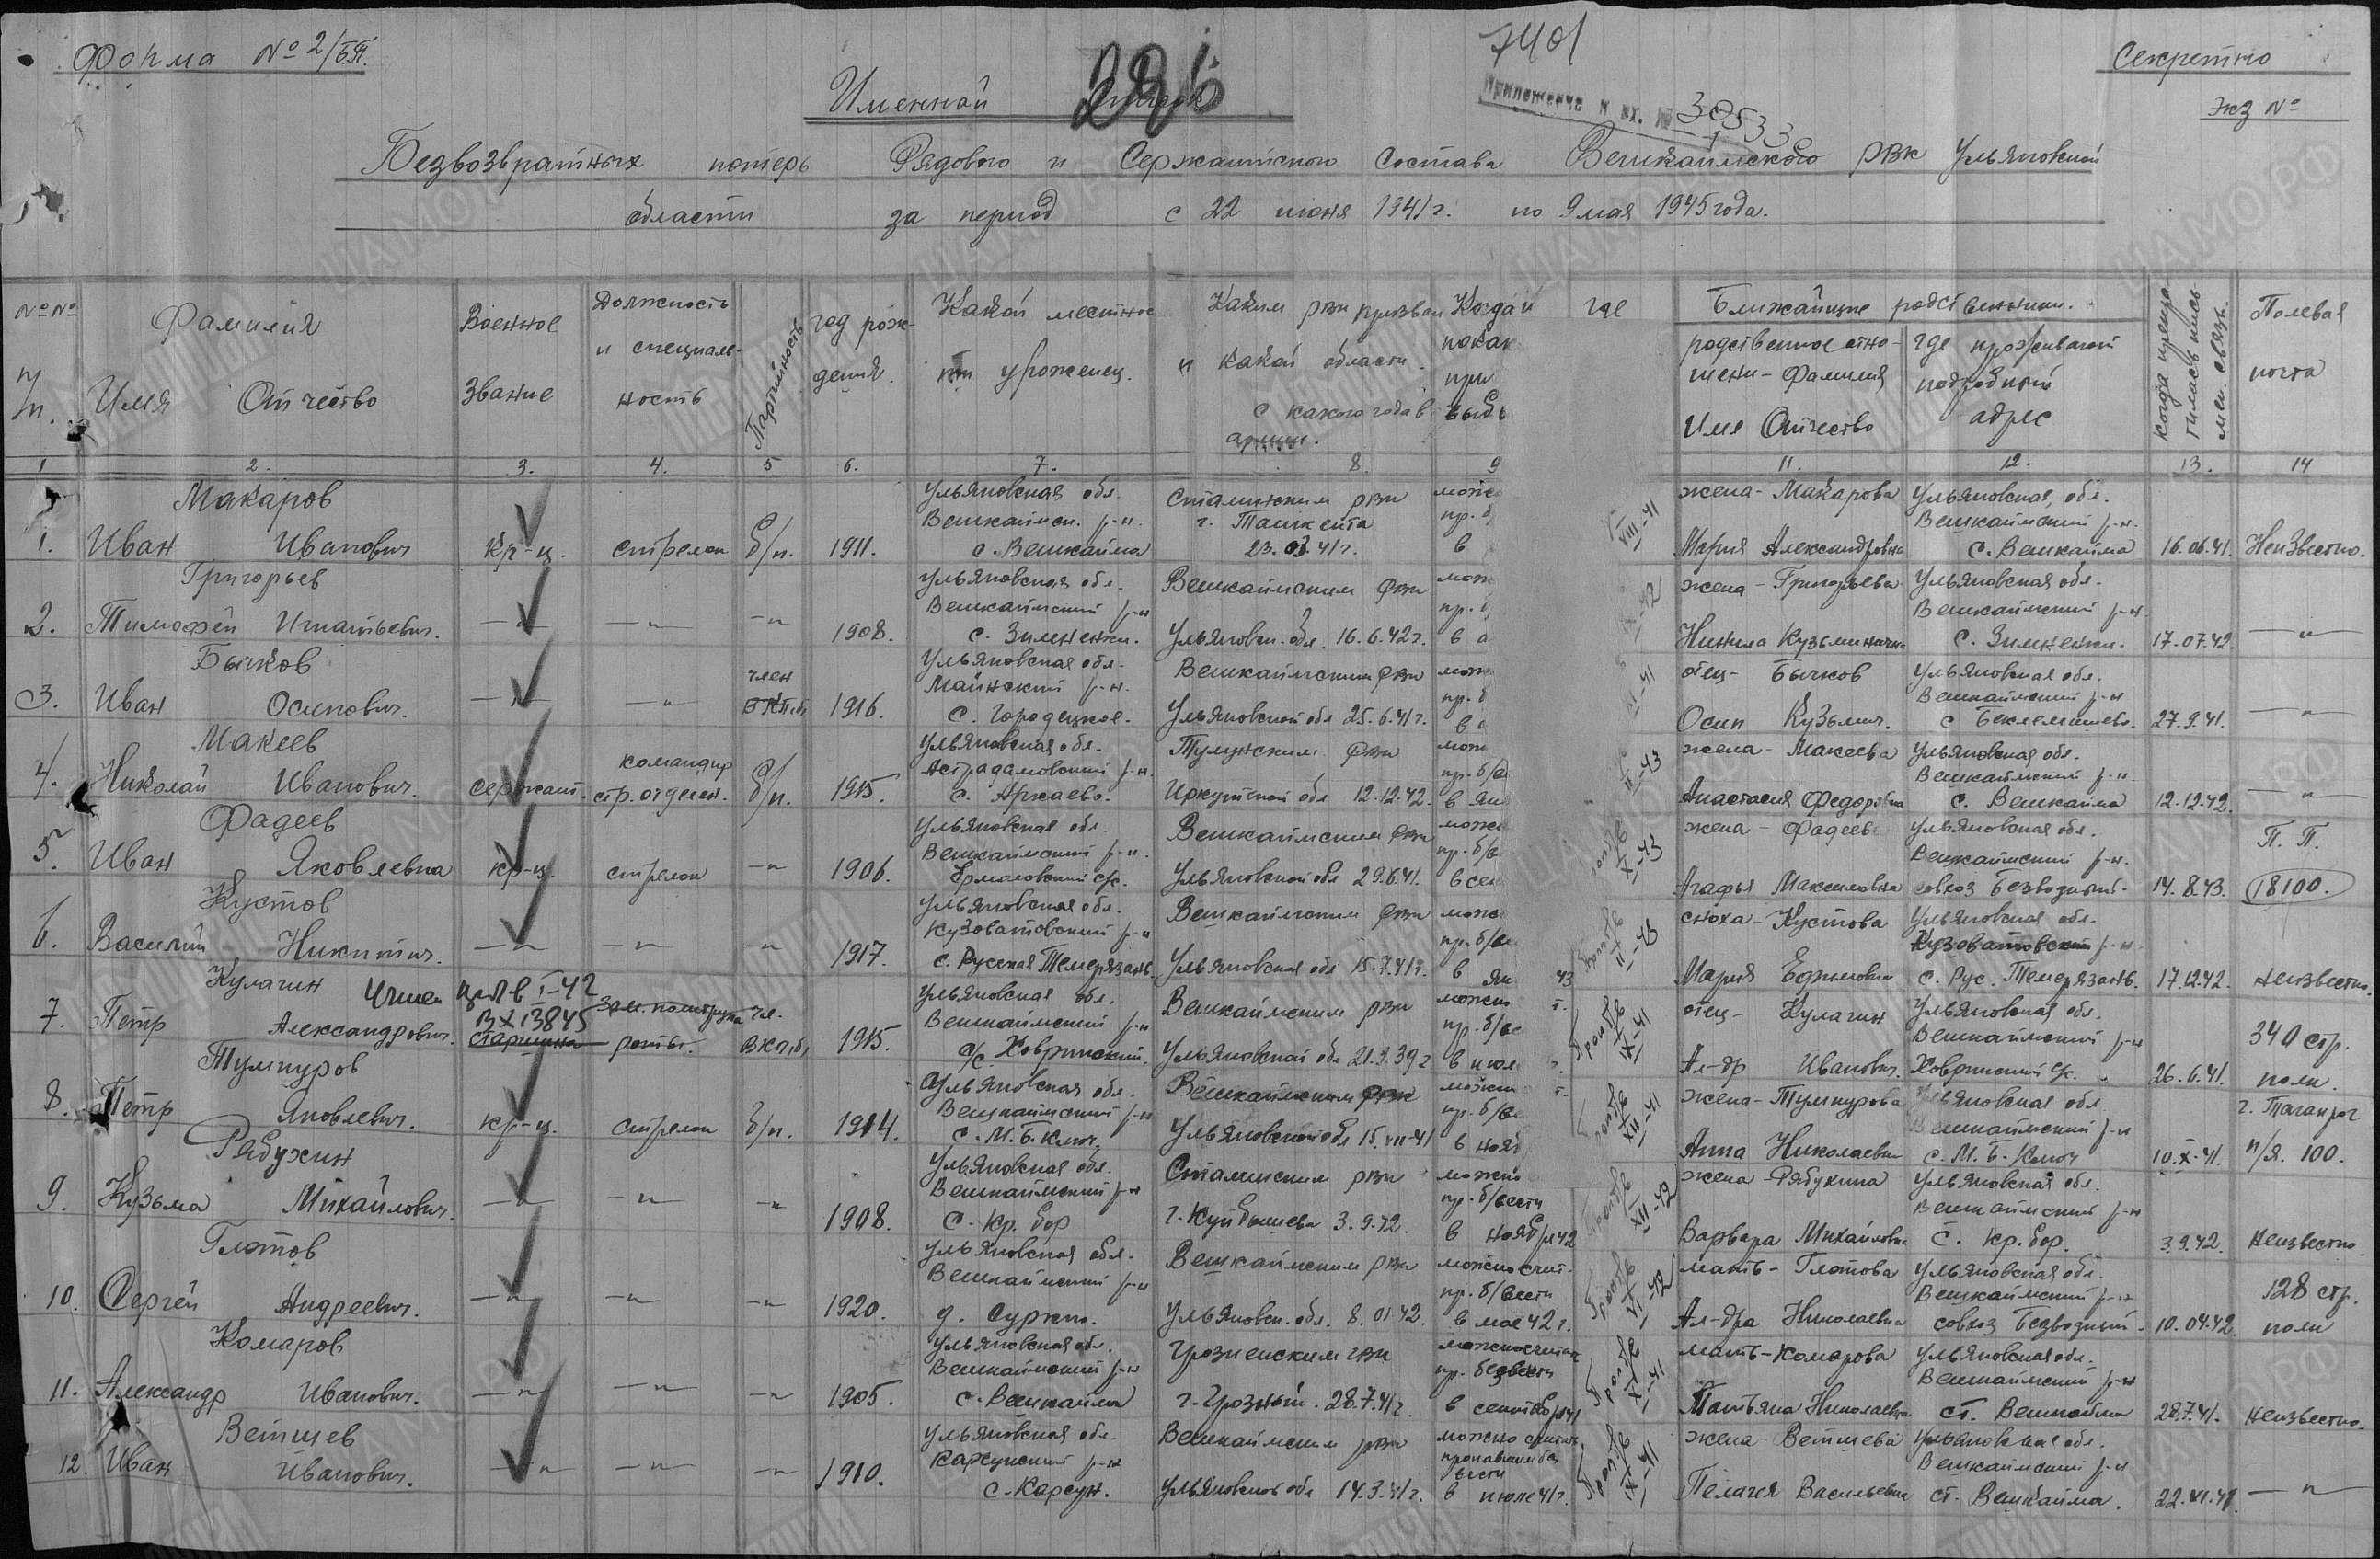 Форма №2/БП.
7401
Секретно
Экз №
Именной список
226
Приложение к вх. №
305330
Безвозвратных потерь Рядового и Сержантского Состава Вешкаймского РВК Ульяновской
области за период с 22 июня 1941 г. по 9 мая 1945 года.
№№ п/п.
Фамилия Имя Отчество
Военное звание
Должность и специаль- ность
Партийность
год рож- дения.
Какой местнос ти уроженец.
Каким рвк призван и какой области. с какого года в армии.
Когда и
где
покак
при
выбы
Ближайшие родственники.
родственное отно- шени - Фамилия Имя Отчество
где проживают подробный адрес
когда прекра- тилась пись мен. связь.
Полевая почта
1 2. 3. 4. 5 6. 7. 8. 9 11. 12. 13. 14
Макаров
1. Иван Иванович кр-ц. стрелок б/п. 1911.
Ульяновская обл.
Вешкаймск. р-н.
с. Вешкайма
Сталинским рвк
г. Ташкента
23. 03. 41 г.
можно
пр. б
в
VIII-41
жена - Макарова
Мария Александровна
Ульяновская, обл.
Вешкаймский р-н.
с. Вешкайма
16.06.41. Неизвестно.
Григорьев
2. Тимофей Игнатьевич. —„— —„— —„ 1908.
Ульяновская обл.
Вешкаймский р-н
с. Зимненки.
Вешкаймским Рвк
Ульяновск. обл. 16.6.42 г.
можн
пр. б
в а
жена - Григорьева
Ненила Кузьминична
Ульяновская обл.
Вешкаймский р-н
с. Зимненки.
17.07.42. —„—
Бычков
3. Иван Осипович. —„— —„— член ВКП.б, 1916.
Ульяновская обл.
Майнский р-н.
с. Городецкое.
Вешкаймским Рвк
Ульяновской обл 25.6.41 г.
можн
пр. б
в
отец - Бычков
Осип Кузьмич.
Ульяновская обл.
Вешкаймский р-н
с Беклемишево.
27.9.41. —„—
Макеев
4. Николай Иванович. сержант. командир стр. отделен. б/п. 1915.
Ульяновская обл.
Астрадамовский р-н.
с. Аркаево.
Тулунским Рвк
Иркутской обл 12.12.42.
можн
пр. б/в
в ян
II-43
жена - Макеева
Анастасия Федоровна
Ульяновская обл.
Вешкаймский р-н
с. Вешкайма
12.12.42. —„—
Фадеев
5. Иван Яковлевна кр-ц. стрелок —„ 1906.
Ульяновская обл.
Вешкаймский р-н.
Ермоловский с/с.
Вешкаймским Рвк
Ульяновской обл 29.6.41.
можн
пр. б/в
в сен
X-43
жена - Фадеев
Агафья Максимовна
Ульяновская обл.
Вешкаймский р-н.
совхоз Безводный.
14.8.43. П. П. 18100.
Кустов
6. Василий Никитич. —„— —„— —„ 1917.
Ульяновская обл.
Кузоватовский р-н
с. Русская Темерязань
Вешкаймским Рвк
Ульяновская обл 15.7.41 г.
можн
пр. б/ве
в ян 43
II-43
сноха - Кустова
Мария Ефимович
Ульяновская обл.
Кузоватовский р-н
с. Рус. Темерязань.
17.12.42. неизвестно.
Кулагин
7. Петр Александрович.
Учтен
I-42
ВХ 13845
старшина зам. политрука роты. чл. ВКП,б, 1915.
Ульяновская обл.
Вешкаймский р-н
с/с. Ховринский.
Вешкаймским рвк
Ульяновской обл 21.9.39 г
можно
пр. б/ве
в июл
IX-41
отец - Кулагин
Ал-др Иванович.
Ульяновская обл.
Вешкаймский р-н
Ховринский с/с.
26.6.41. 340 стр. полк.
Тумпуров
8. Петр Яковлевич. кр-ц. стрелок б/п. 1914.
Ульяновская обл.
Вешкаймский р-н
с. М. Б. Ключ.
Вешкаймским рвк
Ульяновской обл 15.VII-41
можн
пр. б/ве
в нояб
XII-41
жена - Тумпурова
Анна Николаевн
Ульяновская обл
Вешкаймский р-н
с. М. Б. Ключ
10.X.41. г. Таганрог п/я. 100.
Рябухин
9. Кузьма Михайлович. —„— —„— —„ 1908.
Ульяновская обл.
Вешкаймский р-н
с. Кр. бор
Сталинским рвк
г. Куйбышева 3.9.42.
можно
пр. б/вести
в нояб/р 42
XII-42
жена Рябухина
Варвара Михайловна
Ульяновская обл.
Вешкаймский р-н
с. Кр. бор.
3.9.42. Неизвестно.
Глотов
10. Сергей Андреевич. —„— —„— —„ 1920.
Ульяновская обл.
Вешкаймский р-н
д. Сурки.
Вешкаймским рвк
Ульяновск. обл. 8.01.42.
можно счит.
пр. б/вести
в мае 42 г.
VI-42
мать - Глотова
Ал-дра Николаевна
Ульяновская обл.
Вешкаймский р-н
совхоз Безводный.
10.04.42. 128 стр. полк
Комаров
11. Александр Иванович. —„— —„— —„ 1905.
Ульяновская обл.
Вешкаймский р-н
с. Вешкайма
Грозненским гвк
г. Грозный. 28.7.41 г.
можно считать
пр. безвести
в сентябр 41
XI-41
мать - Комарова
Татьяна Николаевна
Ульяновская обл.
Вешкаймский р-н
ст. Вешкайма
28.7.41. Неизвестно.
Ветшев
12. Иван Иванович. —„— —„— —„ 1910.
Ульяновская обл.
Карсунский р-н
с. Карсун.
Вешкаймским рвк
Ульяновской обл 14.3.41 г.
можно считать
пропавшим без
вести
в июле 41 г.
IX-41
жена - Ветшева
Пелагея Васильевна
Ульяновская обл.
Вешкаймский р-н
ст. Вешкайма.
22.VI.41. —„—